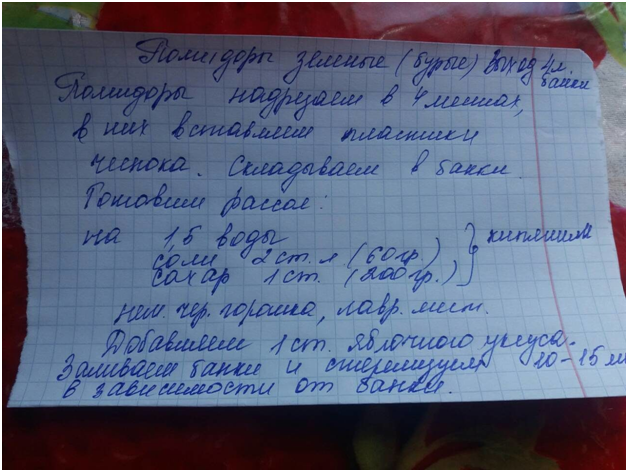 Помидоры зеленые (бурые) Выход 4л. банки
Помидоры надрезаем в 4 местах,
в них вставляем пластики
чеснока. Складываем в банки.
Готовим рассол:
на 1,5 воды
соли 2 ст. л (60гр)
сахар 1 ст. (200гр.) } кипятим
нем. чер. горошка, лавр. лист.
Добавляем 1 ст. яблочного уксуса.
Заливаем банки и стерилизуем 10-15 м
в зависимости от банки.